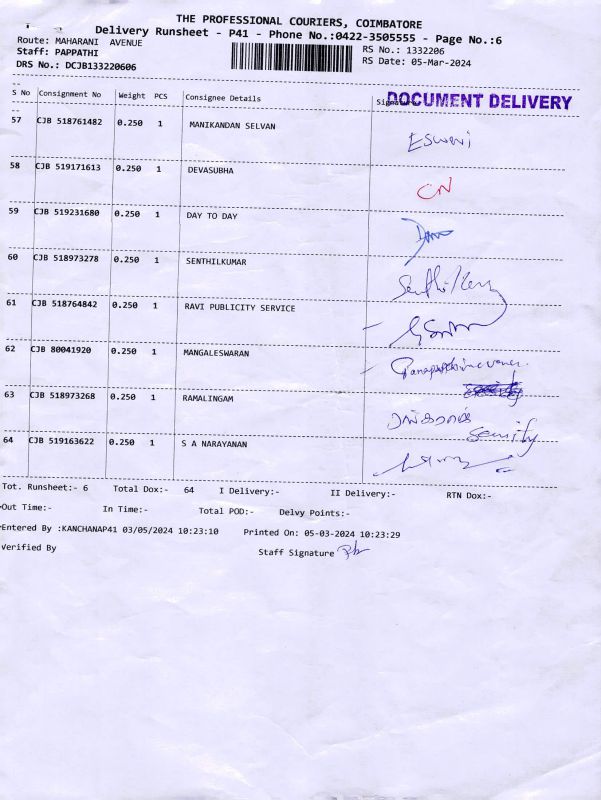 THE PROFESSIONAL COURIERS, COIMBATORE
Delivery Runsheet - P41 - Phone No.:0422-3505555 - Page No.:6
Route: MAHARANI AVENUE
RS No.: 1332206
Staff: PAPPATHI
RS Date: 05-Mar-2024
DRS No.: DCJB133220606
DOCUMENT DELIVERY
S No Consignment No Weight PCS Consignee Details
57 CJB 518761482 0.250 1 MANIKANDAN SELVAN Eswari
58 CJB 519171613 0.250 1 DEVASUBHA CN
59 CJB 519231680 0.250 1 DAY TO DAY
60 CJB 518973278 0.250 1 SENTHILKUMAR
61 CJB 518764842 0.250 1 RAVI PUBLICITY SERVICE
62 CJB 80041920 0.250 1 MANGALESWARAN
63 CJB 518973268 0.250 1 RAMALINGAM
security
64 CJB 519163622 0.250 1 S A NARAYANAN
Tot. Runsheet:- 6 Total Dox:- 64 I Delivery:- II Delivery:- RTN Dox:-
Out Time:- In Time:- Total POD:- Delvy Points:-
Entered By :KANCHANAP41 03/05/2024 10:23:10 Printed On: 05-03-2024 10:23:29
Verified By Staff Signature